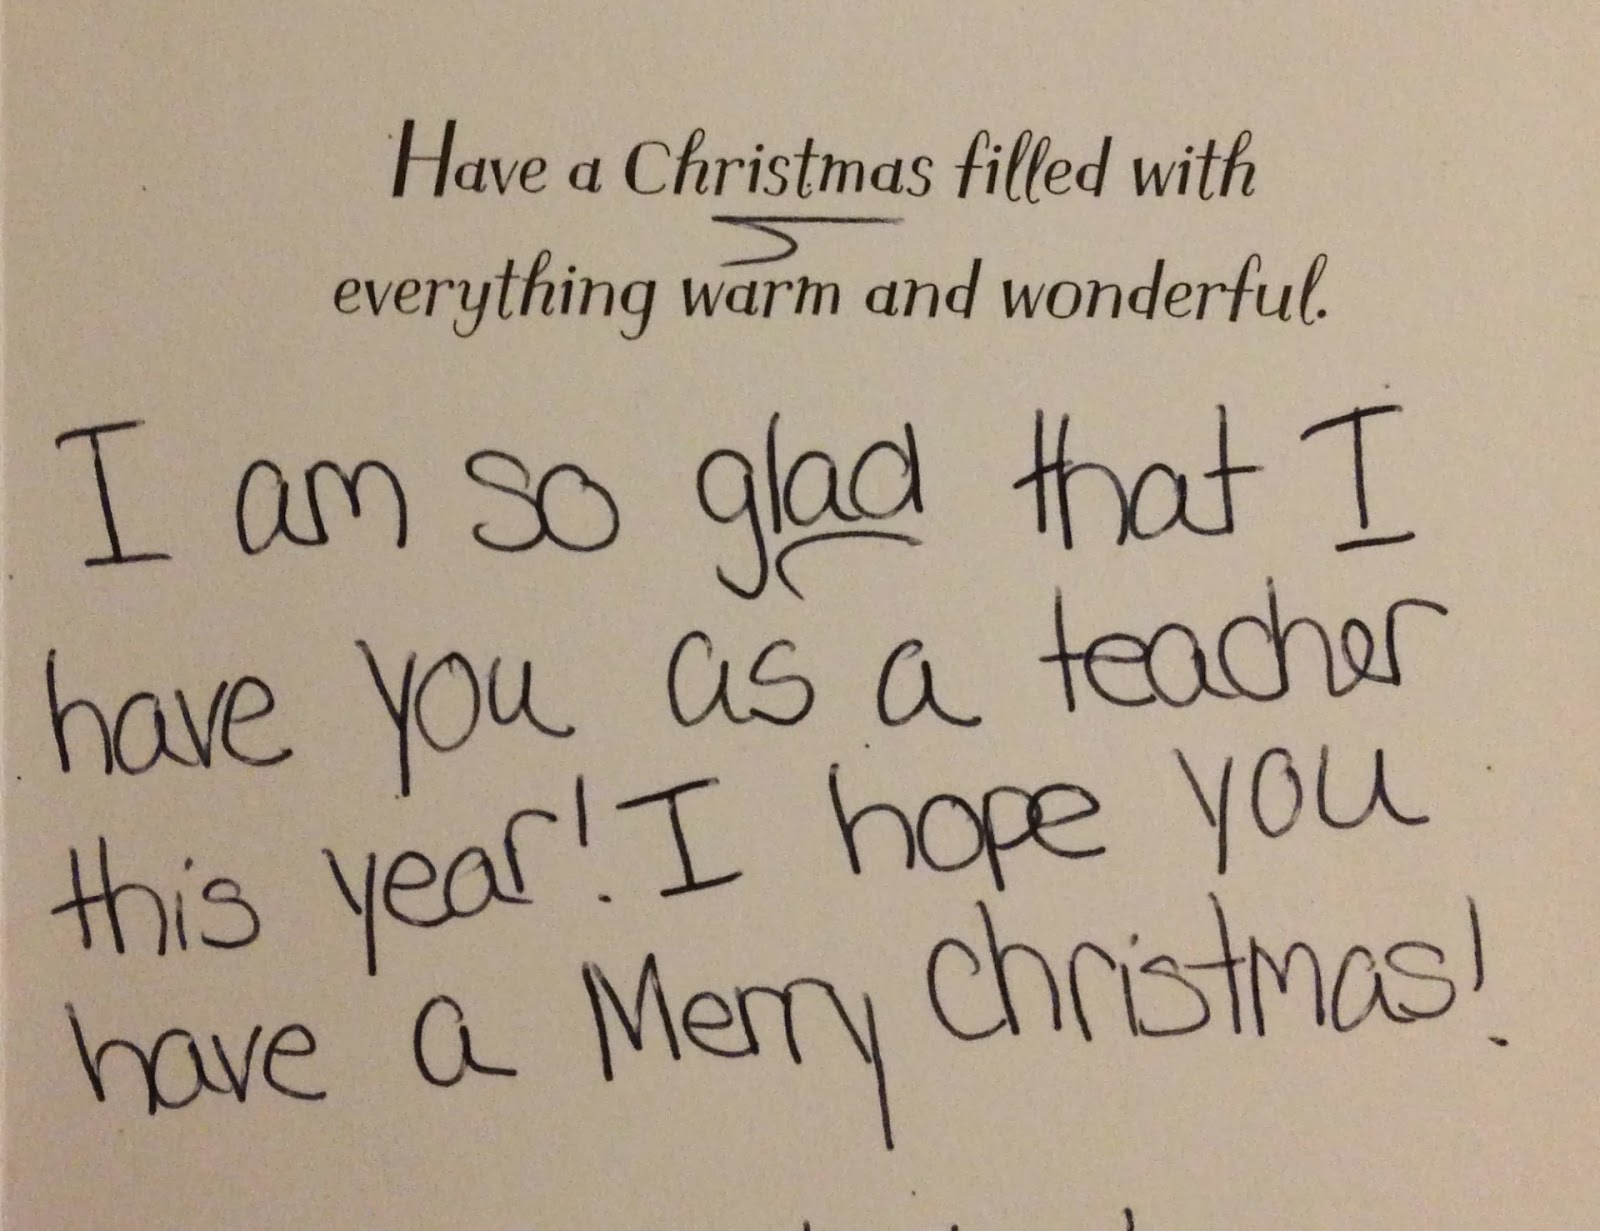 Have a Christmas filled with
everything warm and wonderful.
I am so glad that I
have you as a teacher
this year! I hope you
have a Merry Christmas!